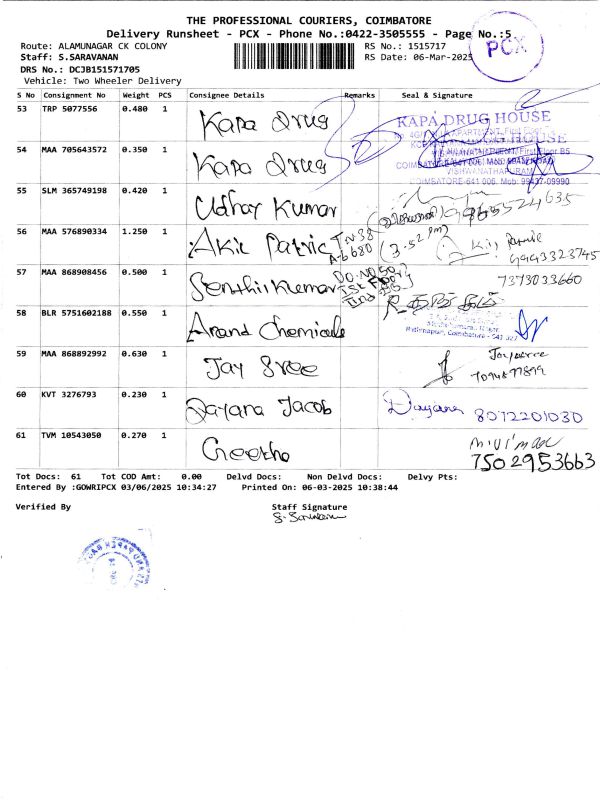 THE PROFESSIONAL COURIERS, COIMBATORE
Delivery Runsheet - PCX - Phone No.:0422-3505555 - Page No.:5
Route: ALAMUNAGAR CK COLONY RS No.: 1515717
PCX
Staff: S.SARAVANAN RS Date: 06-Mar-2025
DRS No.: DCJB151571705
Vehicle: Two Wheeler Delivery
S No Consignment No Weight PCS Consignee Details Remarks Seal & Signature
53 TRP 5077556 0.480 1 Kapa Drug
KAPA DRUG HOUSE
54 MAA 705643572 0.350 1 Kapa Drug
VISHWANATHAPURAM
COIMBATORE-641 006. Mob: 99437-09990
55 SLM 365749198 0.420 1 Udhay Kumar
56 MAA 576890334 1.250 1 Akil Patric TN38 (3.52 PM)
9943323745
57 MAA 868908456 0.500 1 Senthil Kumar DO.NO 50 7373033660
1st Floor
58 BLR 5751602188 0.550 1 Anand Chemicals
59 MAA 868892992 0.630 1 Jay Sree Jayasree
60 KVT 3276793 0.230 1 Dayana Jacob Dayana 8072201030
61 TVM 10543050 0.270 1 Geetha
7502953663
Tot Docs: 61 Tot COD Amt: 0.00 Delvd Docs: Non Delvd Docs: Delvy Pts:
Entered By :GOWRIPCX 03/06/2025 10:34:27 Printed On: 06-03-2025 10:38:44
Verified By Staff Signature
S. Saravanan